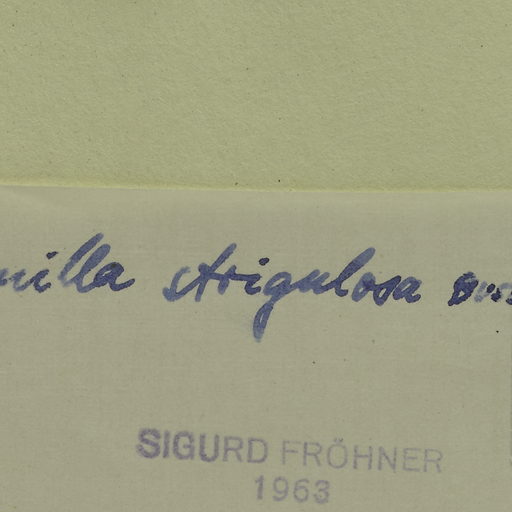 milla strigulosa
SIGURD FRÖHNER
1963